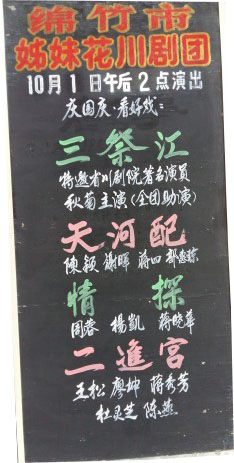 绵竹市
姊妹花川剧团
10月1日午后2点演出
庆国庆·看好戏:
三祭江
特邀省川剧院著名演员
秋菊主演(全团助演)
天河配
陳颖 謝暉 蒋四
情探
周蓉 楊凱 蒋晓華
二進宫
王松 廖坤 蒋秀芳
杜灵芝 陈燕